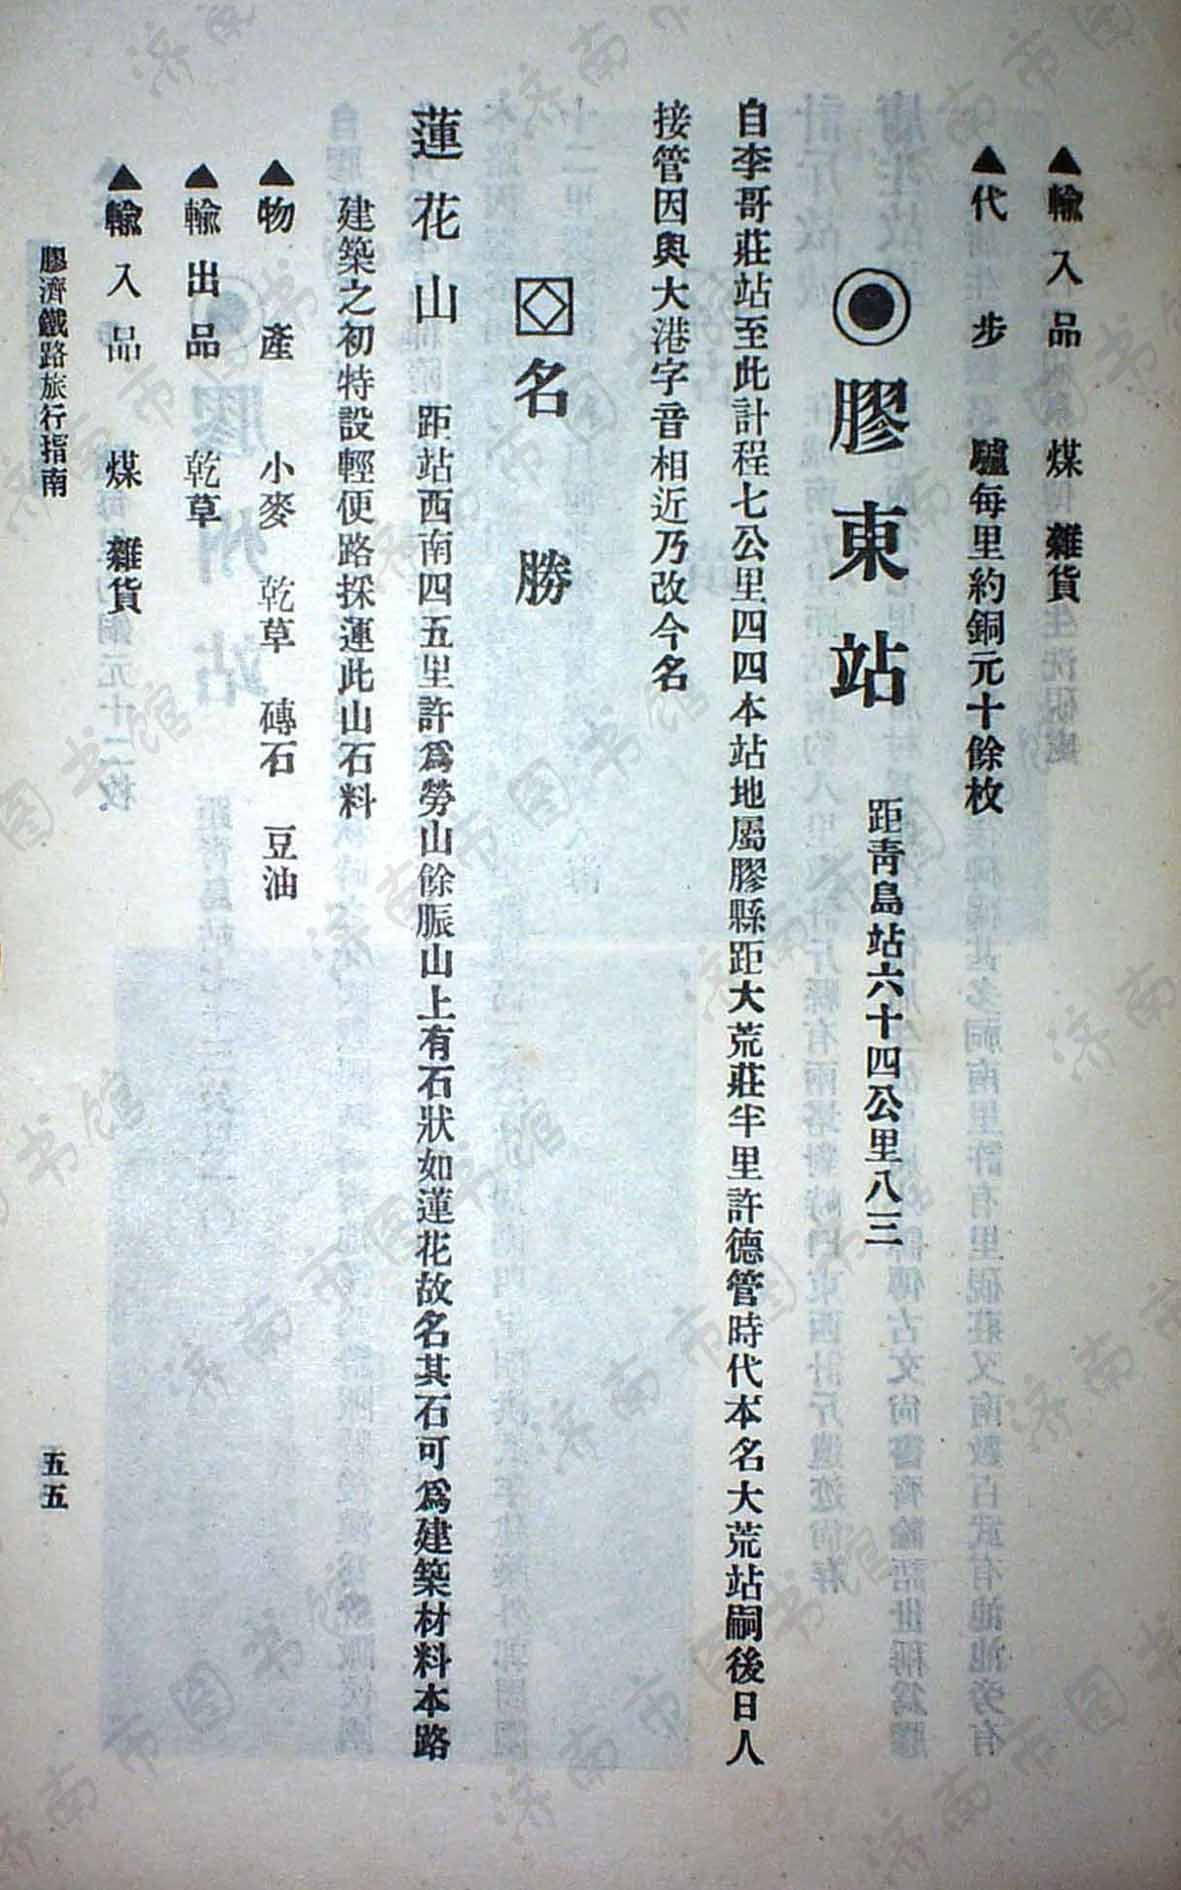 ▲輸入品　煤　雜貨
▲代步　驢每里約銅元十餘枚
◉膠東站　距青島站六十四公里八三
自李哥莊站至此計程七公里四四本站地屬膠縣距大荒莊半里許德管時代本名大荒站嗣後日人
接管因與大港字音相近乃改今名
名勝
蓮花山　距站西南四五里許爲勞山餘脈山上有石狀如蓮花故名其石可爲建築材料本路
建築之初特設輕便路採運此山石料
▲物產　小麥　乾草　磚石　豆油
▲輸出品　乾草
▲輸入品　煤　雜貨
膠濟鐵路旅行指南
五五
济南市图书馆